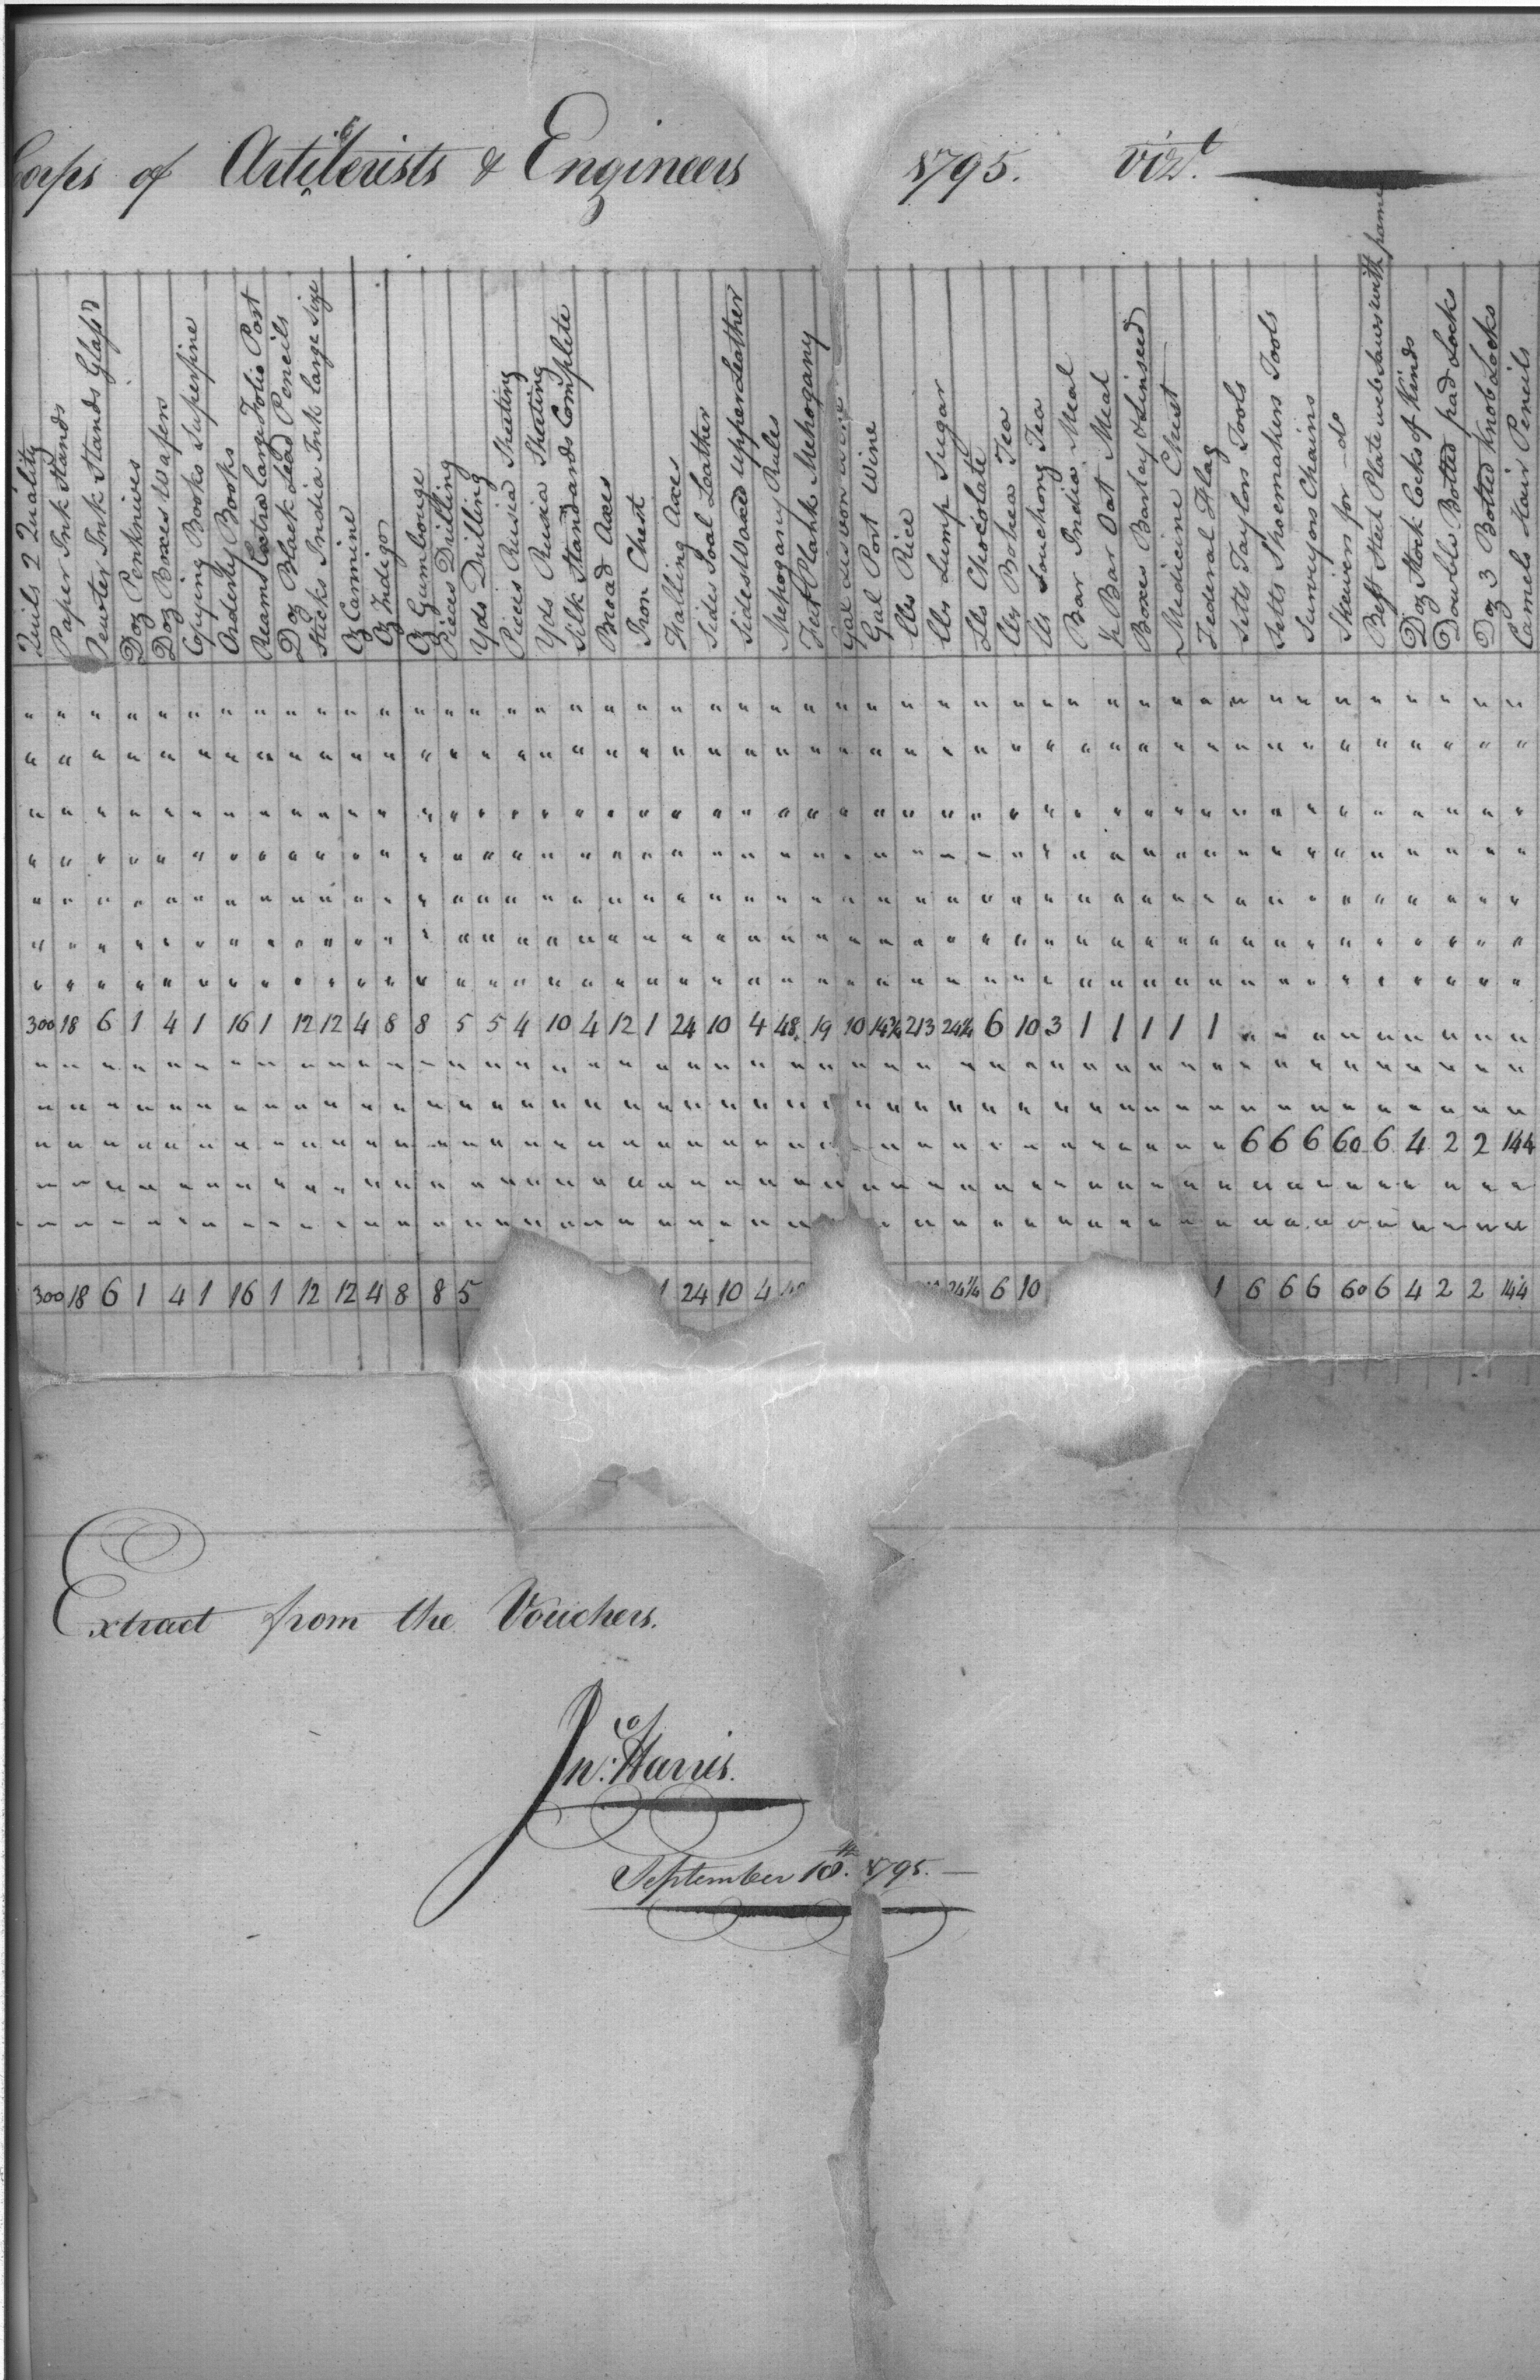 Corps of Artillerists & Engineers 1795. Vizt.
Quils 2 Quality
Paper Ink Stands
Pewter Ink Stands Glass'd
Doz Penknives
Doz Boxes Wafers
Copying Books Superfine
Orderly Books
Reams Extra large Folio Post
Doz Black Lead Pencils
Sticks India Ink large Size
Oz Carmine
Oz Indigo
Oz Gumbouge
Pieces Drilling
Yds Drilling
Pieces Rusia Sheeting
Yds Rusia Sheeting
Silk Standards Complete
Broad Axes
Iron Chest
Falling Axes
Sides Soal Leather
Sides Waxed upper Leather
Mehogany Rules
Feet Plank Mehogany
Gal
Gal Port Wine
lbs Rice
lbs Lump Sugar
lbs Chocolate
lbs Bohea Tea
lbs Souchong Tea
Bar India Meal
½ Bar Oat Meal
Boxes Barley & Linseed
Medicine Chest
Federal Flag
Setts Taylors Tools
Setts Shoemakers Tools
Surveyors Chains
Skewers for do
Best Steel Plate web Saws with frame
Doz Stock Locks of Kinds
Double Bolted pad Locks
Doz 3 Bolted Knob Locks
Camels Hair Pencils
300 18 6 1 4 1 16 1 12 12 4 8 8 5 5 4 10 4 12 1 24 10 4 48 19 10 14¼ 213 24¼ 6 10 3 1 1 1 1 1 " " " " " " " " "
6 6 6 60 6 4 2 2 144
300 18 6 1 4 1 16 1 12 12 4 8 8 5 1 24 10 4 24¼ 6 10 1 6 6 6 60 6 4 2 2 144
Extract from the Vouchers.
Jno. Harris.
September 18th. 1795.